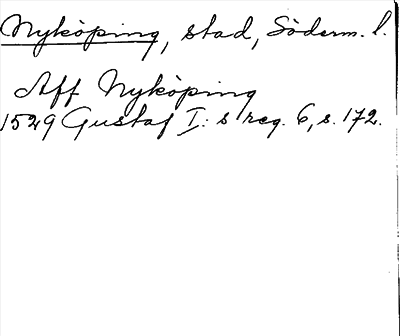 Nyköping, stad, Söderm. l.
Aff Nyköping
1529 Gustaf I:s reg. 6, s. 172.